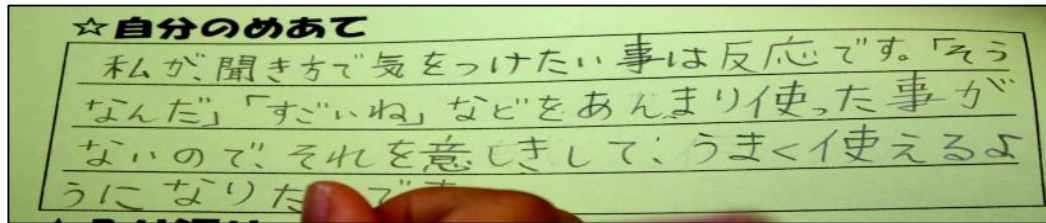 ☆自分のめあて
私が、聞き方で気をつけたい事は反応です。「そう
なんだ」「すごいね」などをあんまり使った事が
ないので、それを意しきして、うまく使えるよ
うになりた